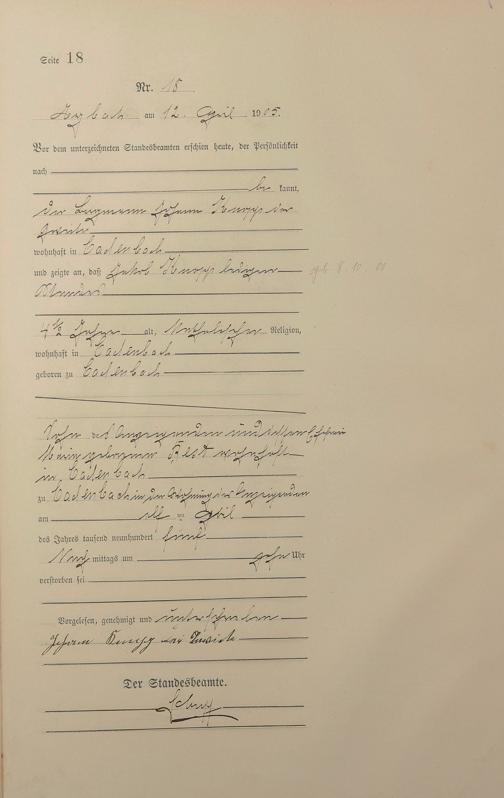 Seite 18
Nr. 18
am 12. April 1905.
Vor dem unterzeichneten Standesbeamten erschien heute, der Persönlichkeit
nach
be kannt,
der Bergmann Johann Knopp der
Zweite
wohnhaft in Cadenbach
und zeigte an, daß Jakob Knopp
4 1/2 Jahre alt, katholischer Religion,
wohnhaft in Cadenbach
geboren zu Cadenbach
Sohn des Anzeigenden und dessen Ehefrau
Maria geborener wohnhaft
in Cadenbach
zu Cadenbach in der Wohnung des Anzeigenden
am elf ten April
des Jahres tausend neunhundert fünf
Nach mittags um zehn Uhr
verstorben sei
Vorgelesen, genehmigt und unterschrieben
Johann der Zweite
Der Standesbeamte.